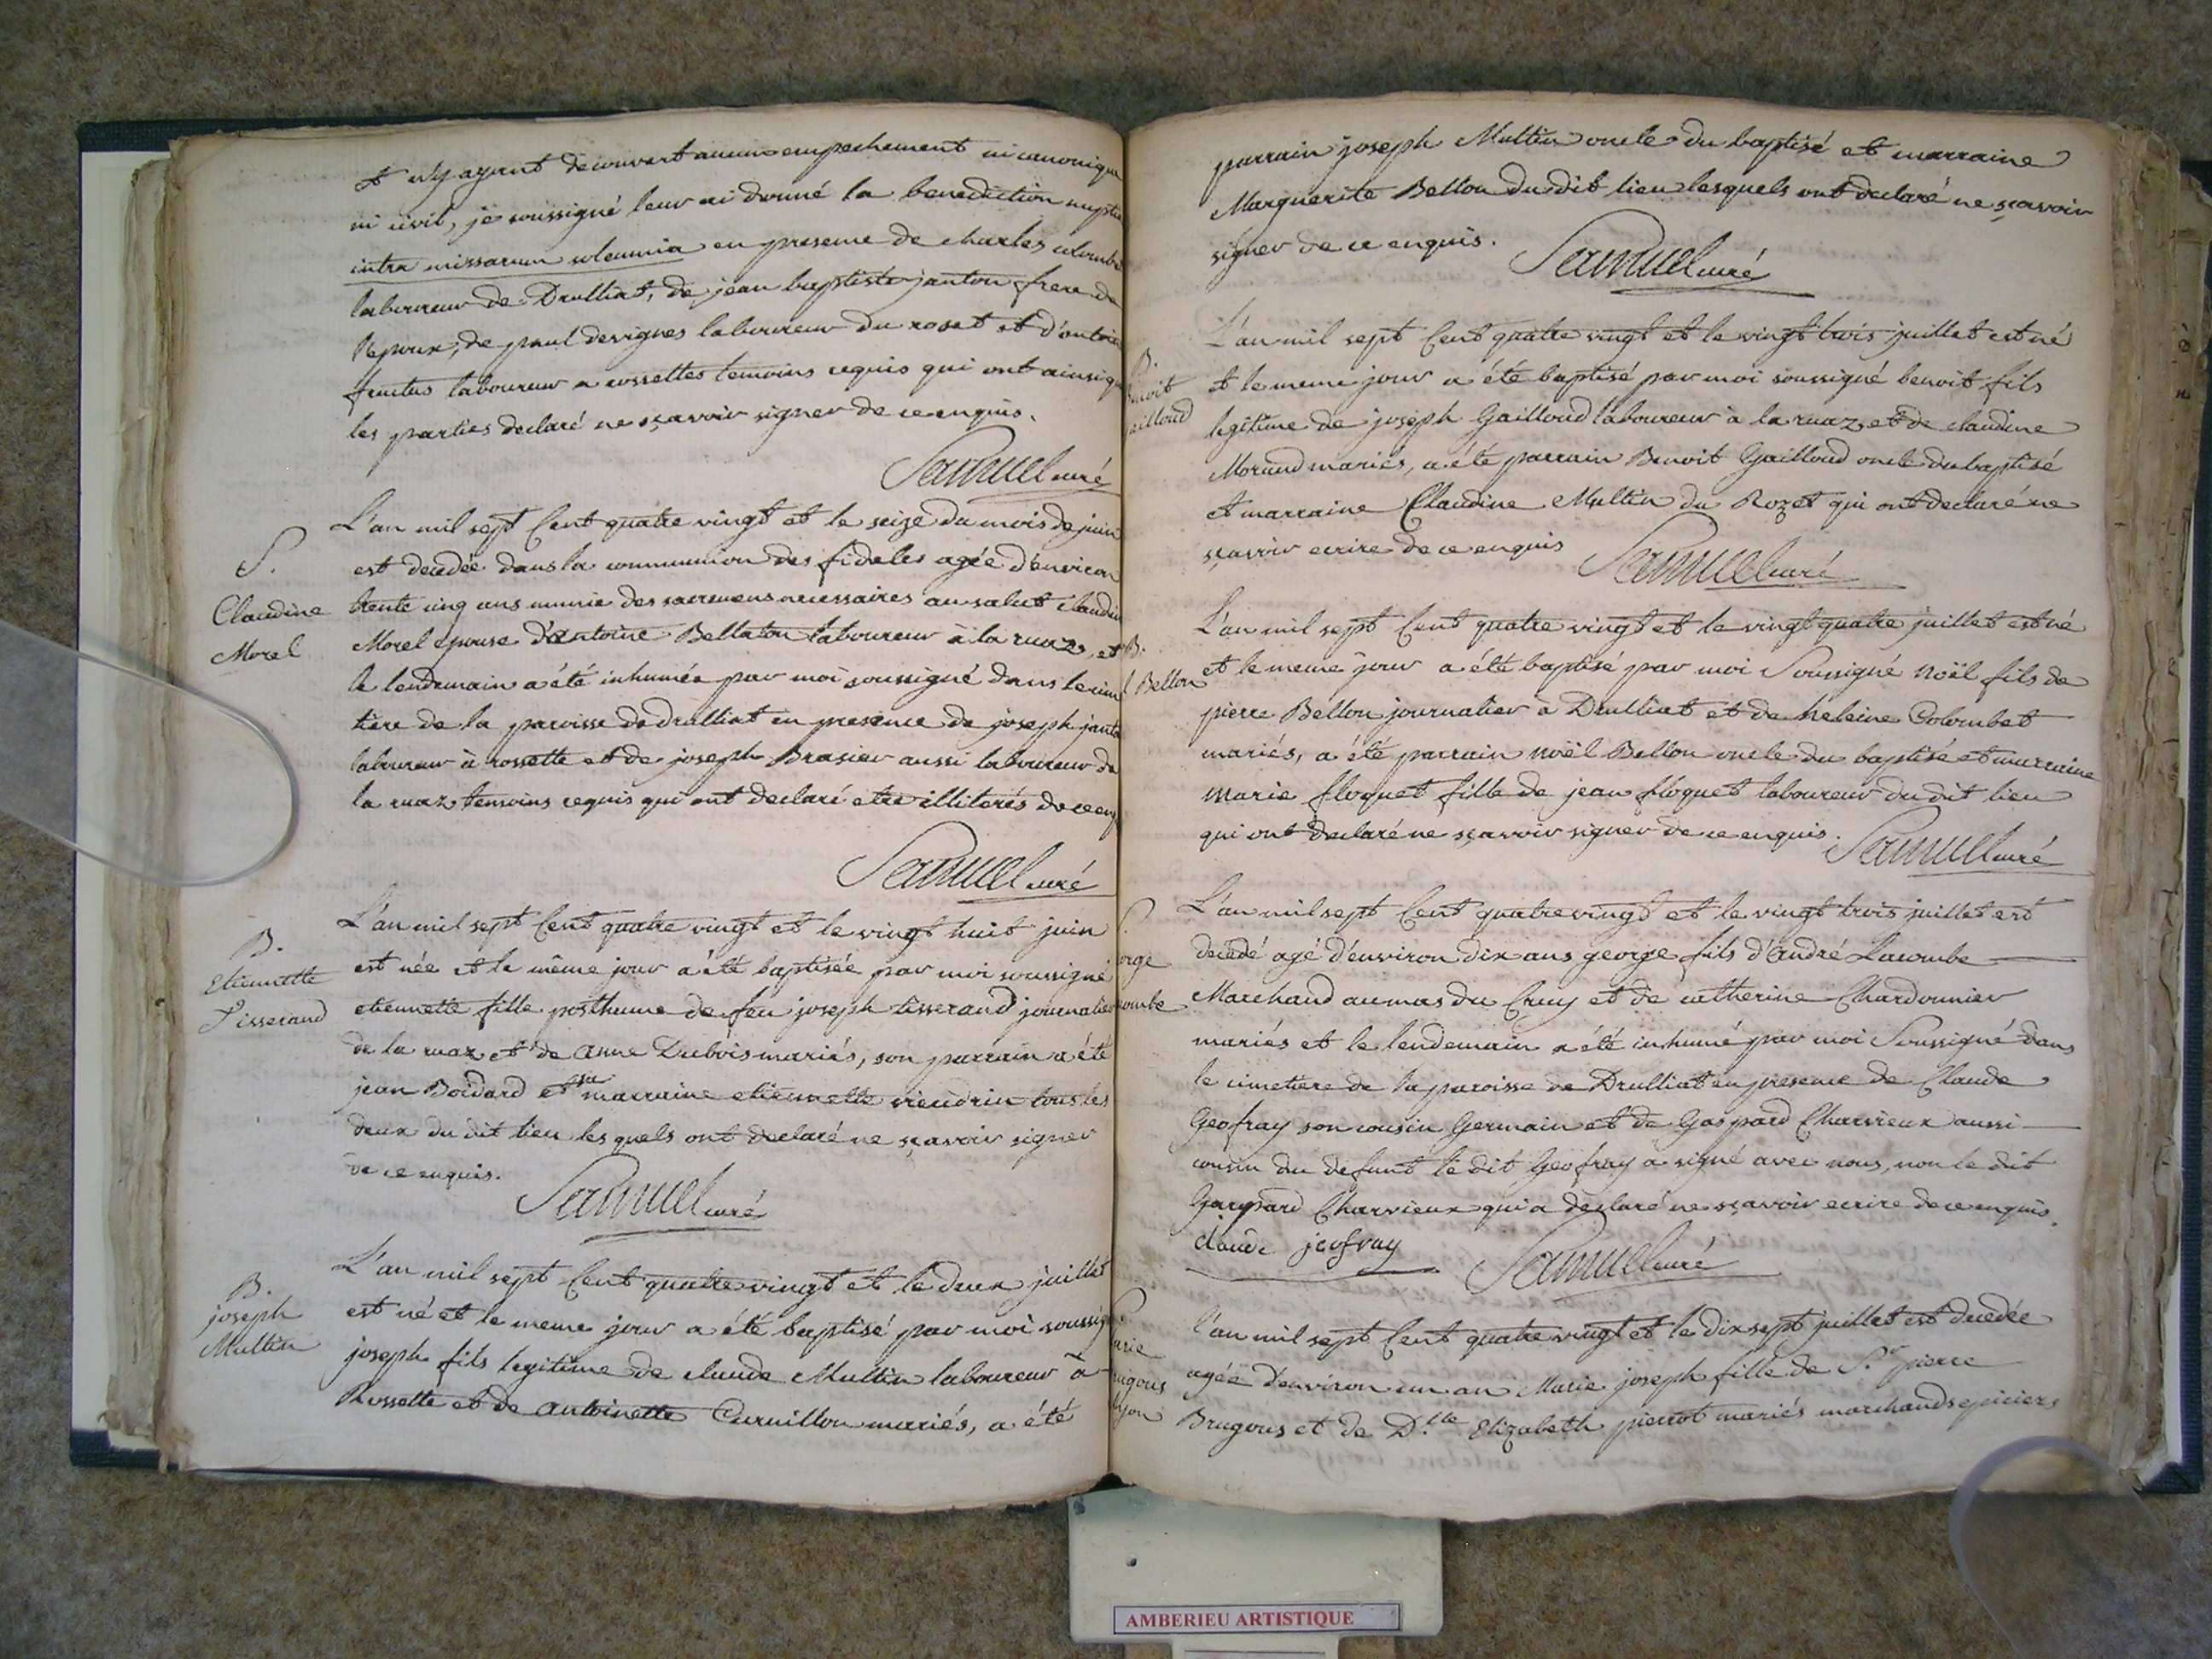 et n'y ayant decouvert aucun empechement ni canonique
ni civil, je soussigné leur ai donné la benediction nuptia
intra missarum solemnia en presence de charles colombe
laboureur de Drulliat, de jean baptiste janton frere de
l'epoux, de paul desvignes laboureur du roset et d'antoine
laboureur a rossettes temoins requis qui ont ainsi que
les parties declaré ne sçavoir signer de ce enquis.
Samuel curé
S.
Claudine
Morel
L'an mil sept Cent quatre vingt et le seize du mois de juin
est decedée dans la communion des fideles agée d'environ
trente cinq ans munie des sacremens necessaires au salut claudine
Morel epouse d'antoine Bellaton laboureur à la ruaz, et
le lendemain a été inhumée par moi soussigné dans le cime
tiere de la paroisse de drulliat en presence de joseph janto
laboureur à rossette et de joseph Brasier aussi laboureur de
la ruaz temoins requis qui ont declaré etre illiterés de ce enq
Samuel curé
B.
Etiennette
Tisserand
L'an mil sept Cent quatre vingt et le vingt huit juin
est née et le même jour a été baptisée par moi soussigné
etiennette fille posthume de feu joseph tisserand journalier
de la ruaz et de anne Dubois mariés, son parrain a été
jean Boidard et sa marraine etiennette viendrin tous les
deux du dit lieu lesquels ont declaré ne sçavoir signer
de ce enquis.
Samuel curé
B.
joseph
Multin
L'an mil sept Cent quatre vingt et le deux juillet
est né et le meme jour a été baptisé par moi soussign
joseph fils legitime de claude Multin laboureur à
Rossette et de antoinette Curnillon mariés, a été
parrain joseph Multin oncle du baptisé et marraine
Marguerite Belton du dit lieu lesquels ont declaré ne sçavoir
signer de ce enquis.
Samuel curé
B.
enoit
ailloud
L'an mil sept Cent quatre vingt et le vingt trois juillet est né
et le meme jour a été baptisé par moi soussigné benoit fils
legitime de joseph Gailloud laboureur à la ruaz, et de claudine
Morand mariés, a été parrain Benoit Gailloud oncle du baptisé
et marraine Claudine Multin du Rozet qui ont declaré ne
sçavoir ecrire de ce enquis
Samuel curé
B.
l Belton
L'an mil sept Cent quatre vingt et le vingt quatre juillet est né
et le meme jour a été baptisé par moi Soussigné noël fils de
pierre Belton journalier à Drulliat et de heleine Colombet
mariés, a été parrain noël Belton oncle du baptisé et marraine
marie floquet fille de jean floquet laboureur du dit lieu
qui ont declaré ne sçavoir signer de ce enquis.
Samuel curé
S.
orge
combe
L'an mil sept Cent quatre vingt et le vingt trois juillet est
decedé agé d'environ dix ans george fils d'andré Lacombe
Marchand au mas du Cruy et de catherine Chardonnier
mariés et le lendemain a été inhumé par moi Soussigné dans
le cimetiere de la paroisse de Drulliat en presence de Claude
Geofray son cousin Germain et de Gaspard Charvieux aussi
cousin du defunt le dit Geofray a signé avec nous, non le dit
Gaspard Charvieux qui a declaré ne sçavoir ecrire de ce enquis.
claude jeofray
Samuel curé
S.
arie
ugous
lyon
l'an mil sept Cent quatre vingt et le dix sept juillet est decedée
agée d'environ un an Marie joseph fille de S.r pierre
Brugous et de D.lle Elizabeth pierrot mariés marchands epiciers
AMBERIEU ARTISTIQUE